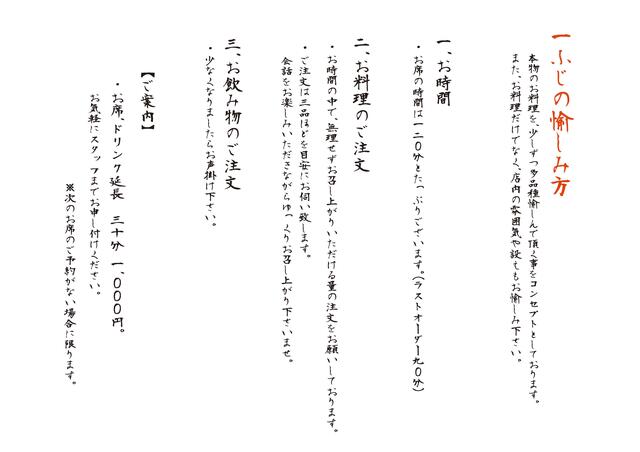 一ふじの愉しみ方
本物のお料理を、少しずつ多品種愉しんで頂く事をコンセプトとしております。
また、お料理だけでなく、店内の雰囲気や設えもお愉しみ下さい。
一、お時間
・お席の時間は一二〇分とたっぷりございます。(ラストオーダー九〇分)
二、お料理のご注文
・お時間の中で、無理せずお召し上がりいただける量の注文をお願いしております。
・ご注文は三品ほどを目安にお伺い致します。
会話をお楽しみいただきながらゆっくりお召し上がり下さいませ。
三、お飲み物のご注文
・少なくなりましたらお声掛け下さい。
【ご案内】
・お席、ドリンク延長 三十分 一、〇〇〇円。
お気軽にスタッフまでお申し付けください。
※次のお席のご予約がない場合に限ります。